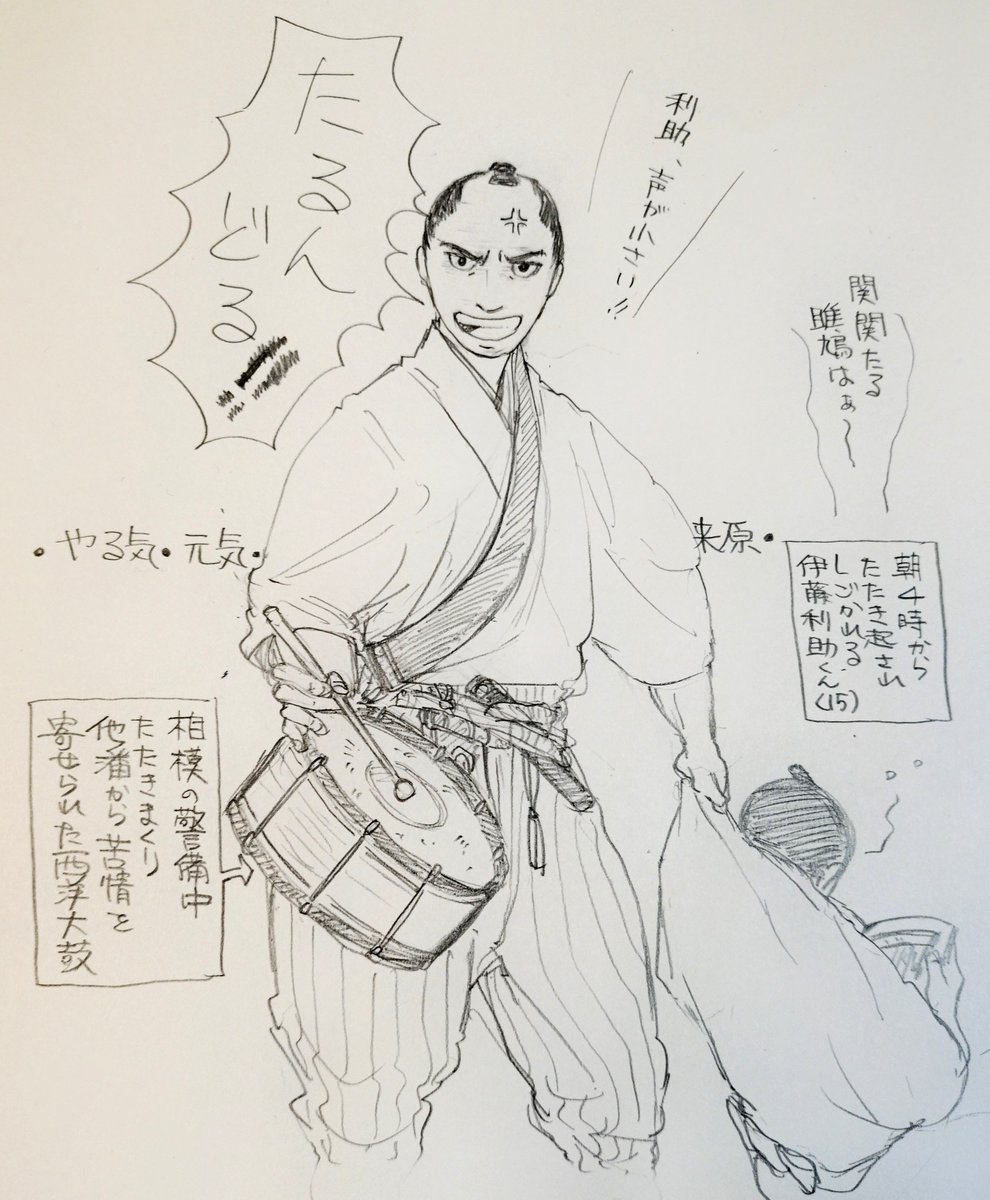 利助、声が小さい!!
たるん
どるー!!
関関たる
雎鳩はぁ〜
・やる気・元気・来原・
朝4時から
たたき起され
しごかれる
伊藤利助くん(15)
相模の警備中
たたきまくり
他潘から苦情を
寄せられた西洋太鼓